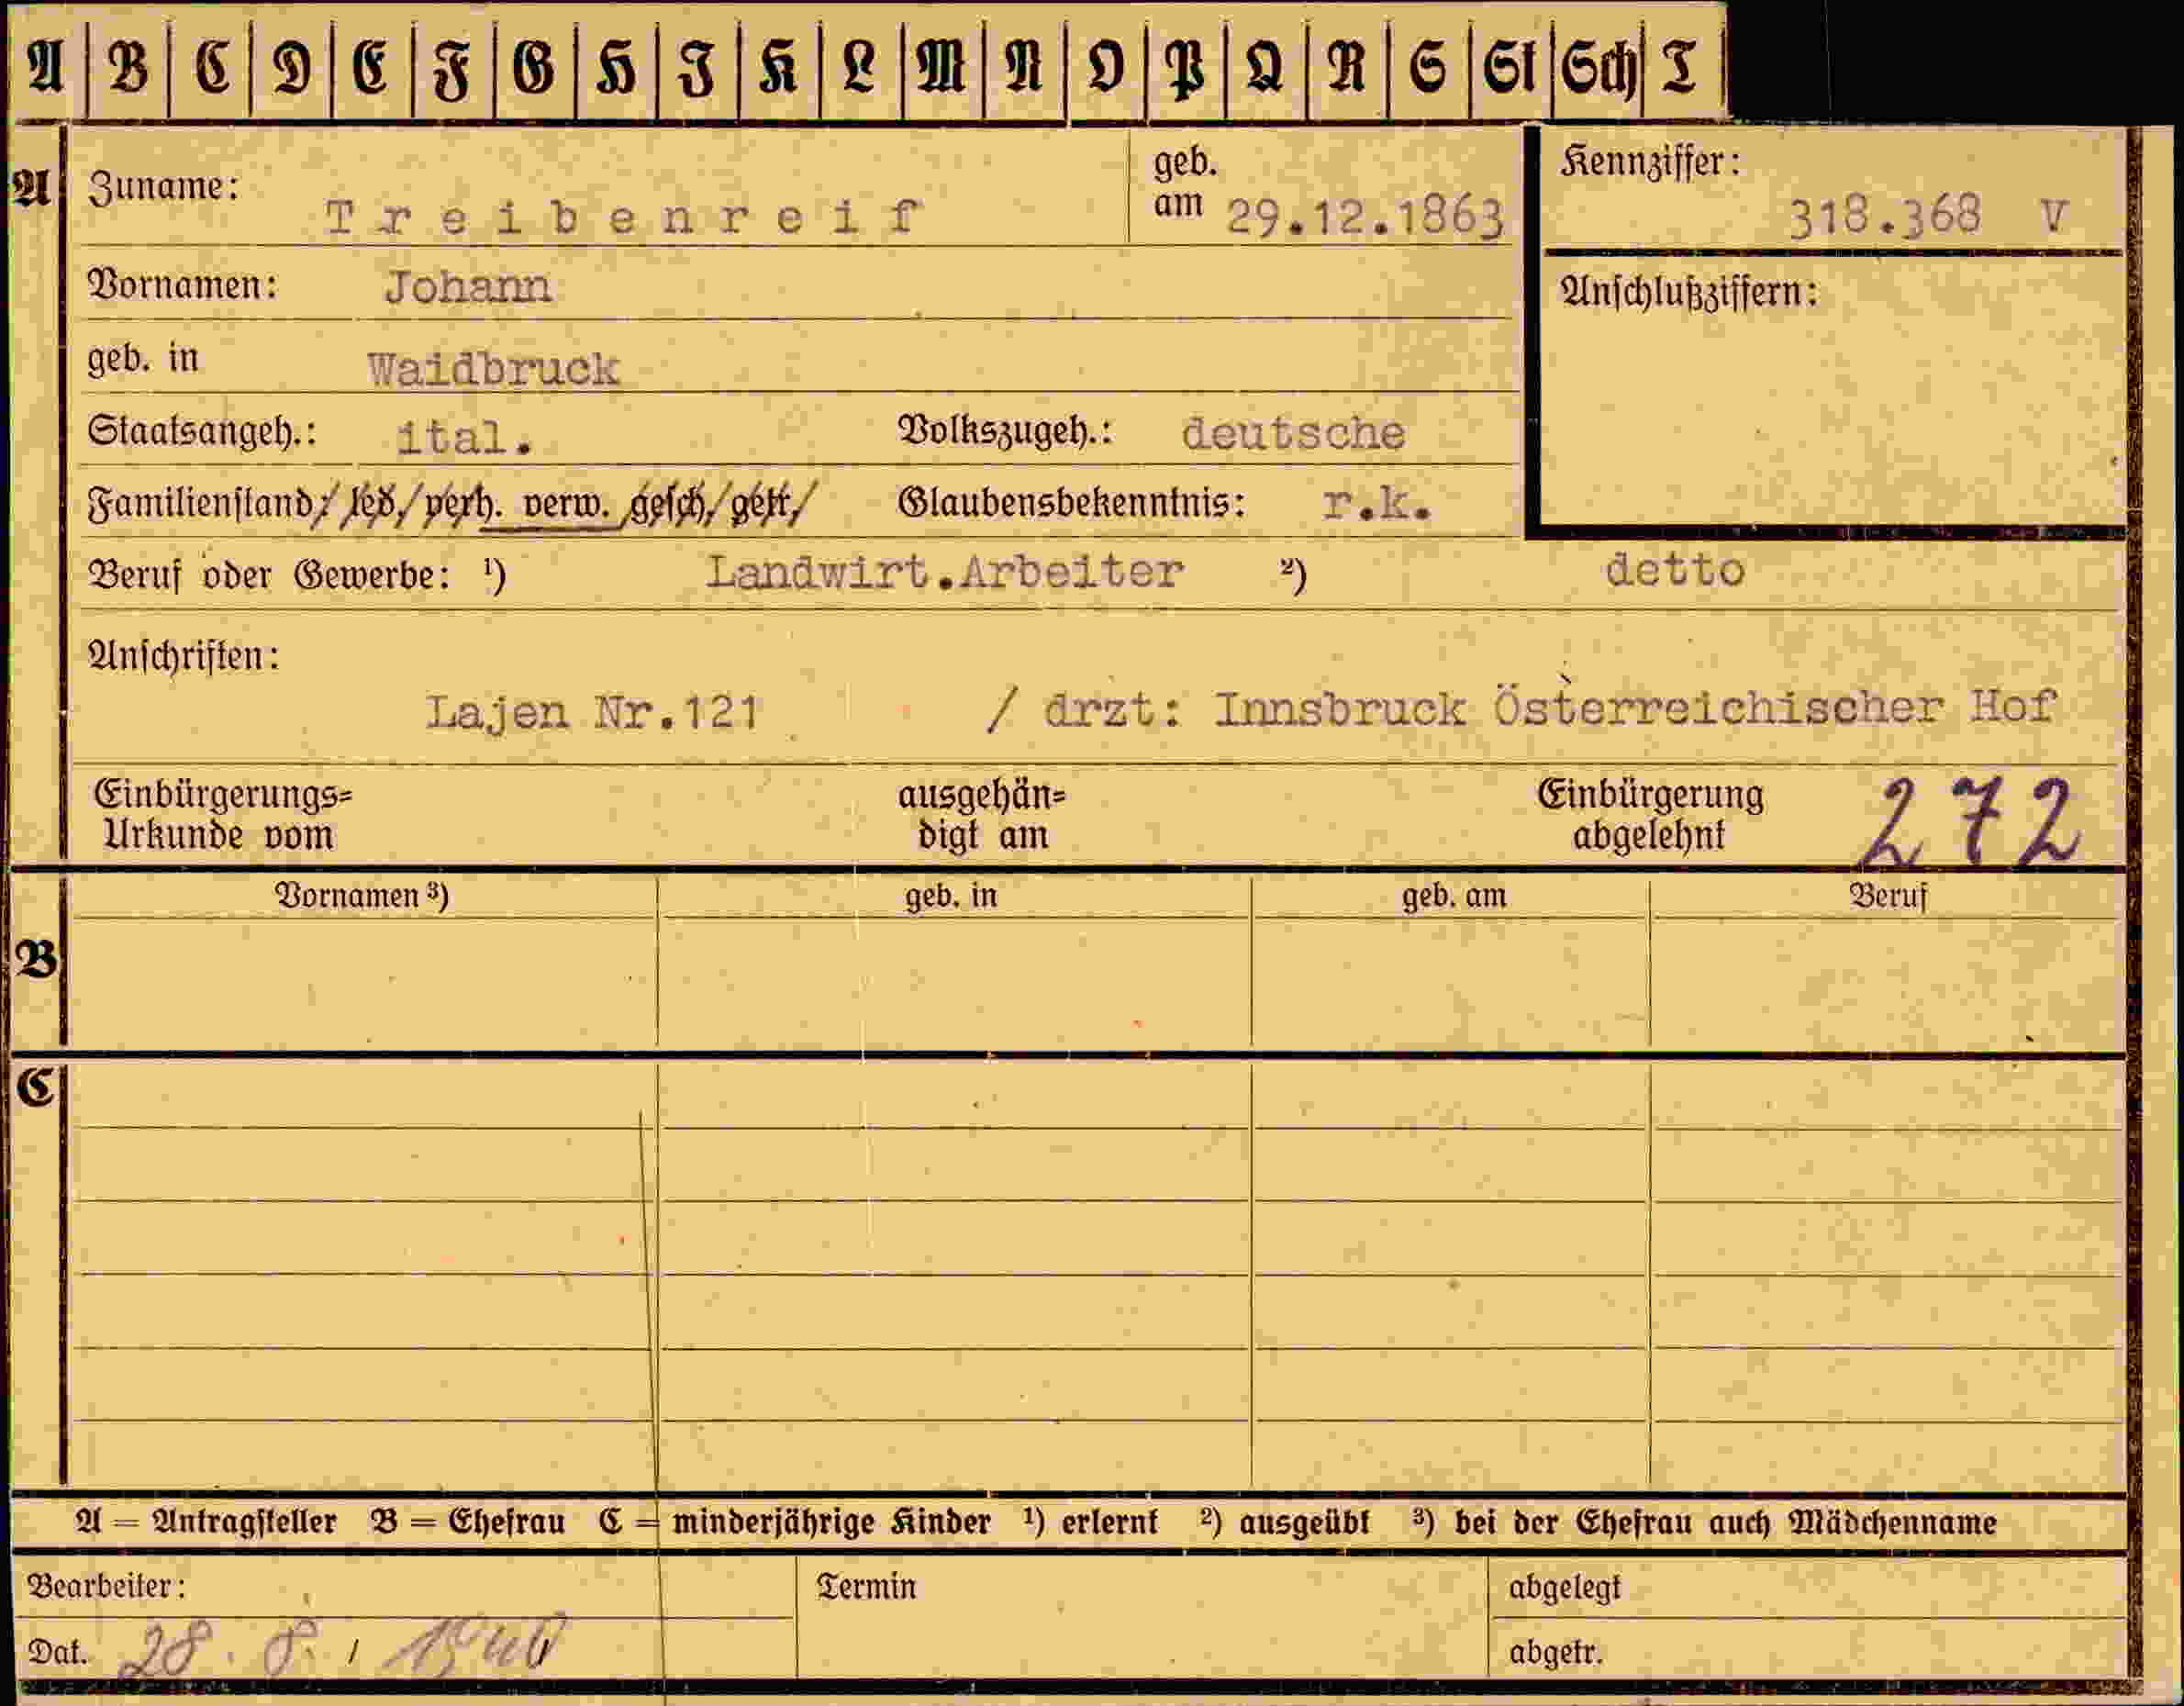 A B C D E F G H I K L M N O P Q R S St Sch T
A Zuname: Treibenreif geb. am 29.12.1863 Kennziffer: 318.368 V
Vornamen: Johann Anschlußziffern:
geb. in Waidbruck
Staatsangeh.: ital. Volkszugeh.: deutsche
Familienstand: led. verh. verw. gesch. getr. Glaubensbekenntnis: r.k.
Beruf oder Gewerbe: ¹) Landwirt.Arbeiter ²) detto
Anschriften:
Lajen Nr.121 / drzt: Innsbruck Österreichischer Hof
Einbürgerungs= ausgehän= Einbürgerung 272
Urkunde vom digt am abgelehnt
Vornamen ³) geb. in geb. am Beruf
B
C
A = Antragsteller B = Ehefrau C = minderjährige Kinder ¹) erlernt ²) ausgeübt ³) bei der Ehefrau auch Mädchenname
Bearbeiter: Termin abgelegt
Dat. 28. 8. / 1940 abgetr.